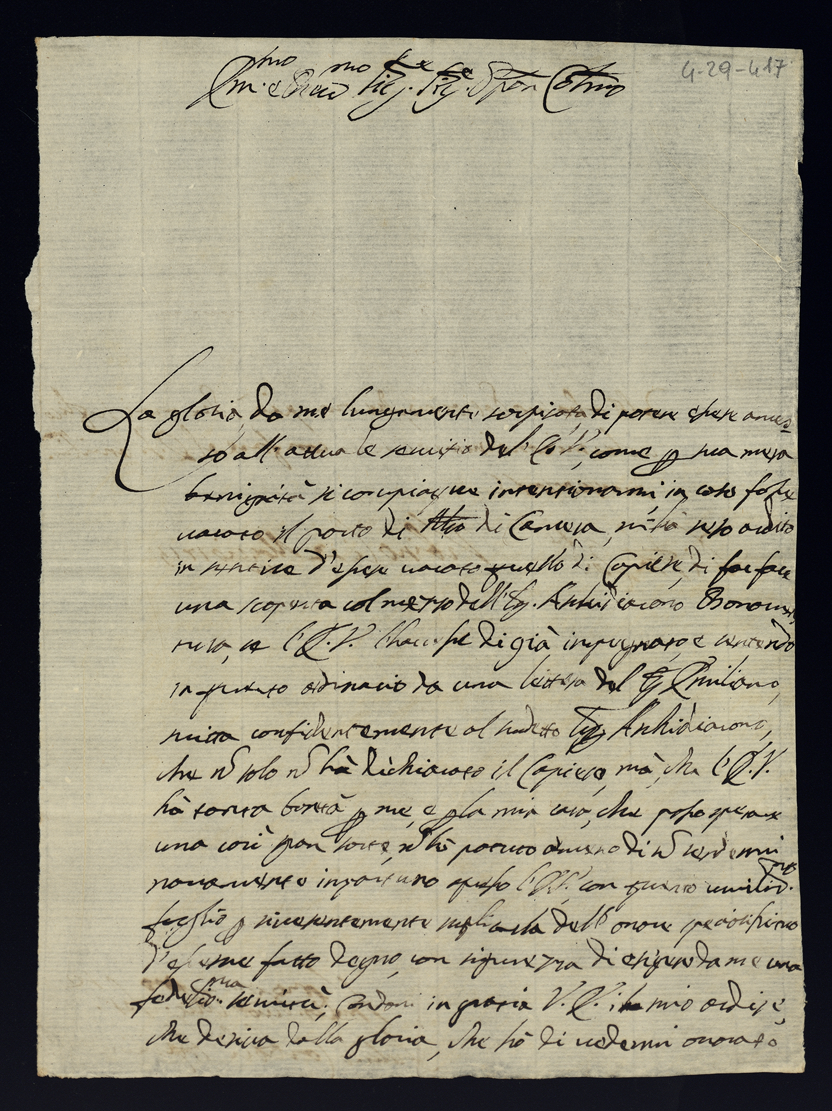 4-29-417
Em.mo e Rev.mo Sig.re Sig.re Pron Col.mo
La gloria da me lungamente sospirata di potere essere ames-
so all'attuale servitio dell'E.V., come p sua mera
benignità si compiacque intentionarmi, in caso fosse
vacato il posto di di Camera, m'hà reso ardito
in sentire d'essere vacato quello di Capiere, di far fare
una scoperta col mezzo dell' Sig. Archidiacono Bonaven-
tura, se l'E.V. l'havesse di già impegnato, e sentendo
in questo ordinario da una lettera del Sig. Emiliano,
scritta confidentemente al sudetto Sig. Archidiacono,
che nō solo nō hà dichiarato il Capiere, mà, che l'E.V.
hà tanta bontà p me, e p la mia casa, che posso sperare
una così gran sorte, nō hò potuto di meno di nō rendermi
novamente importuno apresso l'E.V. con questo umiliss.mo
foglio p riverentemente suplicarla dell'onore pretiosissimo
d'esserne fatto degno, con sicurezza di esigere da me una
fedeliss.ma servitù; condoni in gratia V.E. il mio ardire,
che deriva dalla gloria, che hò di vedermi onorato